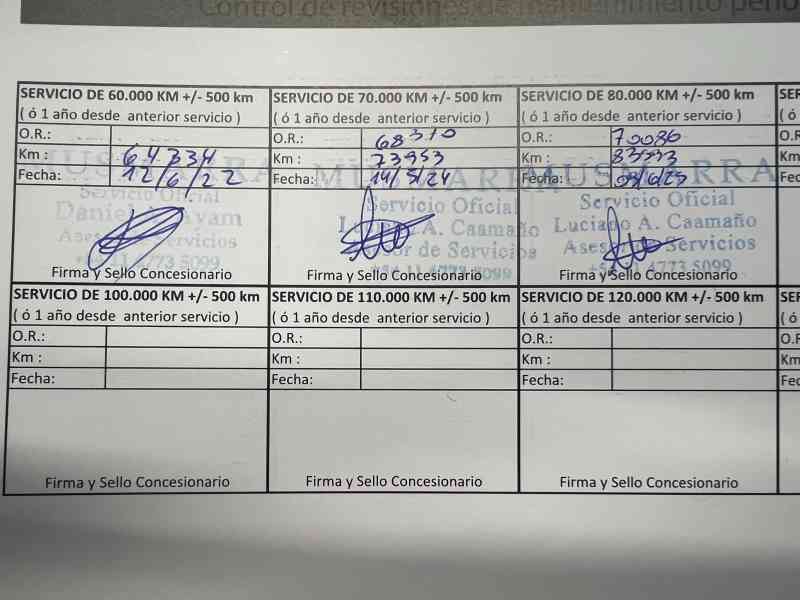 Control de revisiones de mantenimiento
SERVICIO DE 60.000 KM +/- 500 km
( ó 1 año desde anterior servicio )
O.R.:
Km : 64334
Fecha: 12/6/22
Servicio Oficial
Asesor de Servicios
4773 5099
Firma y Sello Concesionario
SERVICIO DE 70.000 KM +/- 500 km
( ó 1 año desde anterior servicio )
O.R.: 68310
Km : 73953
Fecha: 14/5/24
Servicio Oficial
A. Caamaño
de Servicios
Firma y Sello Concesionario
SERVICIO DE 80.000 KM +/- 500 km
( ó 1 año desde anterior servicio )
O.R.: 70086
Km :
Fecha:
Servicio Oficial
Luciano A. Caamaño
Asesor de Servicios
4773 5099
Firma y Sello Concesionario
SERVICIO DE 100.000 KM +/- 500 km
( ó 1 año desde anterior servicio )
O.R.:
Km :
Fecha:
Firma y Sello Concesionario
SERVICIO DE 110.000 KM +/- 500 km
( ó 1 año desde anterior servicio )
O.R.:
Km :
Fecha:
Firma y Sello Concesionario
SERVICIO DE 120.000 KM +/- 500 km
( ó 1 año desde anterior servicio )
O.R.:
Km :
Fecha:
Firma y Sello Concesionario